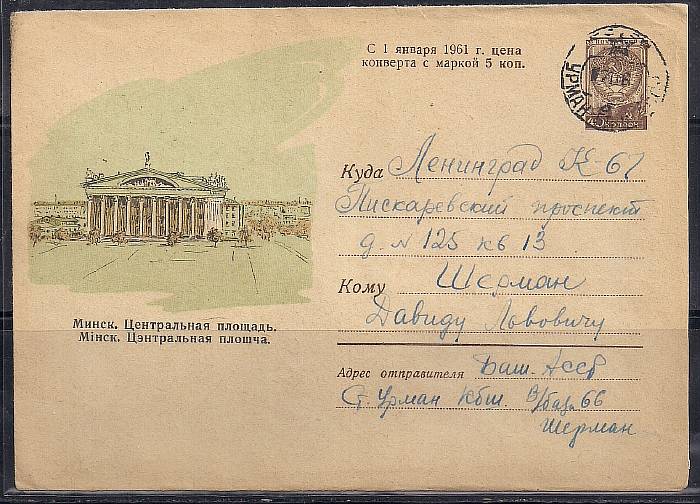 С 1 января 1961 г. цена
конверта с маркой 5 коп.
Куда Ленинград К-67
Пискаревский проспект
д. N 125 кв 13
Кому Шерман
Давиду Львовичу
Минск. Центральная площадь.
Мінск. Цэнтральная плошча.
Адрес отправителя Баш. АССР
Ст. Урман Кбш. в/база 66
Шерман
УРМАН